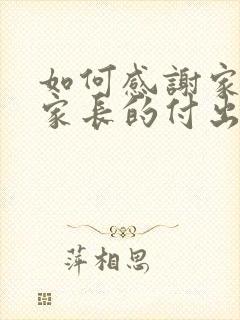 如何感謝家
家長的付出
萍相思